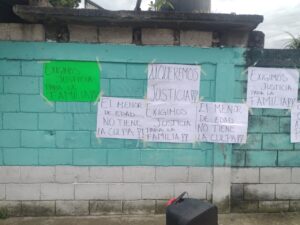 EXIGIMOS
JUSTICIA
PARA LA
FAMILIA!!!
EL MENOR
DE EDAD
NO TIENE
LA CULPA!!!
¡QUEREMOS
JUSTICIA!!!
EXIGIMOS
JUSTICIA
PARA LA
FAMILIA!!!
EL MENOR
DE EDAD
NO TIENE
LA CULPA!!!
EXIGIMOS
JUSTICIA
PARA LA
FAMILIA!!!